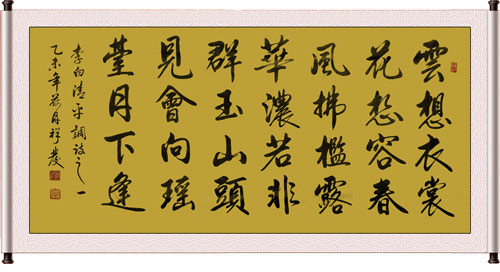 雲想衣裳
花想容春
風拂檻露
華濃若非
群玉山頭
見會向瑶
臺月下逢
李白清平調詩之一
乙未年月祥